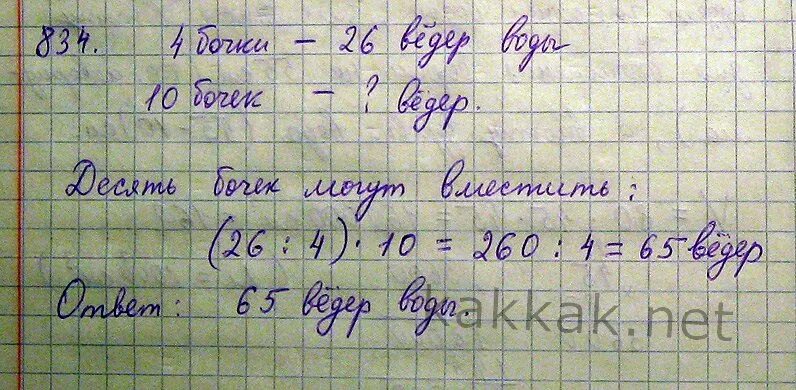 834. 4 бочки – 26 вёдер воды
10 бочек – ? вёдер.
Десять бочек могут вместить:
(26 : 4) · 10 = 260 : 4 = 65 вёдер
Ответ: 65 вёдер воды.
kakkak.net